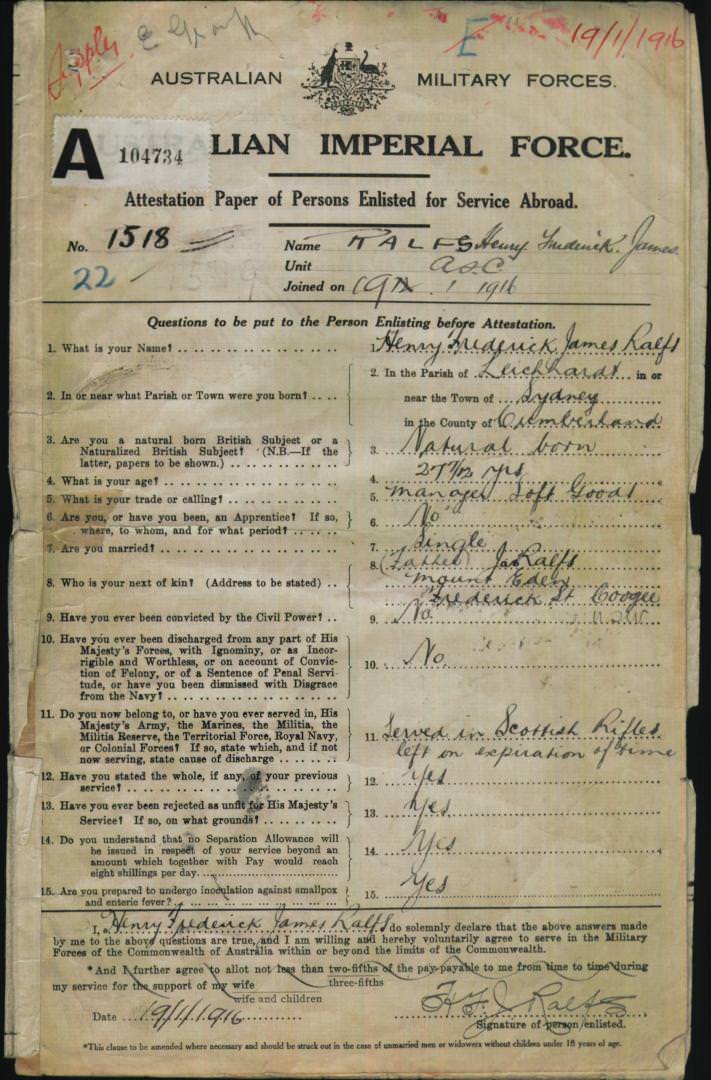 19/1/1916
AUSTRALIAN MILITARY FORCES.
LIAN IMPERIAL FORCE.
A 104734
Attestation Paper of Persons Enlisted for Service Abroad.
No. 1518 Name RALFS Henry Frederick James
22 Unit ASC
Joined on 19 1 1916
Questions to be put to the Person Enlisting before Attestation.
1. What is your Name? 1. Henry Frederick James Ralfs
2. In or near what Parish or Town were you born? 2. In the Parish of Leichhardt in or
near the Town of Sydney
in the County of Cumberland
3. Are you a natural born British Subject or a
Naturalized British Subject? (N.B.—If the
latter, papers to be shown.) 3. Natural born
4. What is your age? 4. 27 yrs
5. What is your trade or calling? 5. Manager Soft Goods
6. Are you, or have you been, an Apprentice? If so,
where, to whom, and for what period? 6. No
7. Are you married? 7. Single
8. Who is your next of kin? (Address to be stated) 8. (Father) Jas Ralfs
Mount Eden
Frederick St Coogee
N.S.W
9. Have you ever been convicted by the Civil Power? 9. No
10. Have you ever been discharged from any part of His
Majesty's Forces, with Ignominy, or as Incor-
rigible and Worthless, or on account of Convic-
tion of Felony, or of a Sentence of Penal Servi-
tude, or have you been dismissed with Disgrace
from the Navy? 10. No
11. Do you now belong to, or have you ever served in, His
Majesty's Army, the Marines, the Militia, the
Militia Reserve, the Territorial Force, Royal Navy,
or Colonial Forces? If so, state which, and if not
now serving, state cause of discharge 11. Served in Scottish Rifles
left on expiration of time
12. Have you stated the whole, if any, of your previous
service? 12. Yes
13. Have you ever been rejected as unfit for His Majesty's
Service? If so, on what grounds? 13. Yes
14. Do you understand that no Separation Allowance will
be issued in respect of your service beyond an
amount which together with Pay would reach
eight shillings per day. 14. Yes
15. Are you prepared to undergo inoculation against smallpox
and enteric fever? 15. Yes
I, Henry Frederick James Ralfs do solemnly declare that the above answers made
by me to the above questions are true, and I am willing and hereby voluntarily agree to serve in the Military
Forces of the Commonwealth of Australia within or beyond the limits of the Commonwealth.
*And I further agree to allot not less than two-fifths of the pay payable to me from time to time during
three-fifths
my service for the support of my wife
wife and children
Date 19/1/1916 H F J Ralfs
Signature of person enlisted.
*This clause to be amended where necessary and should be struck out in the case of unmarried men or widowers without children under 18 years of age.